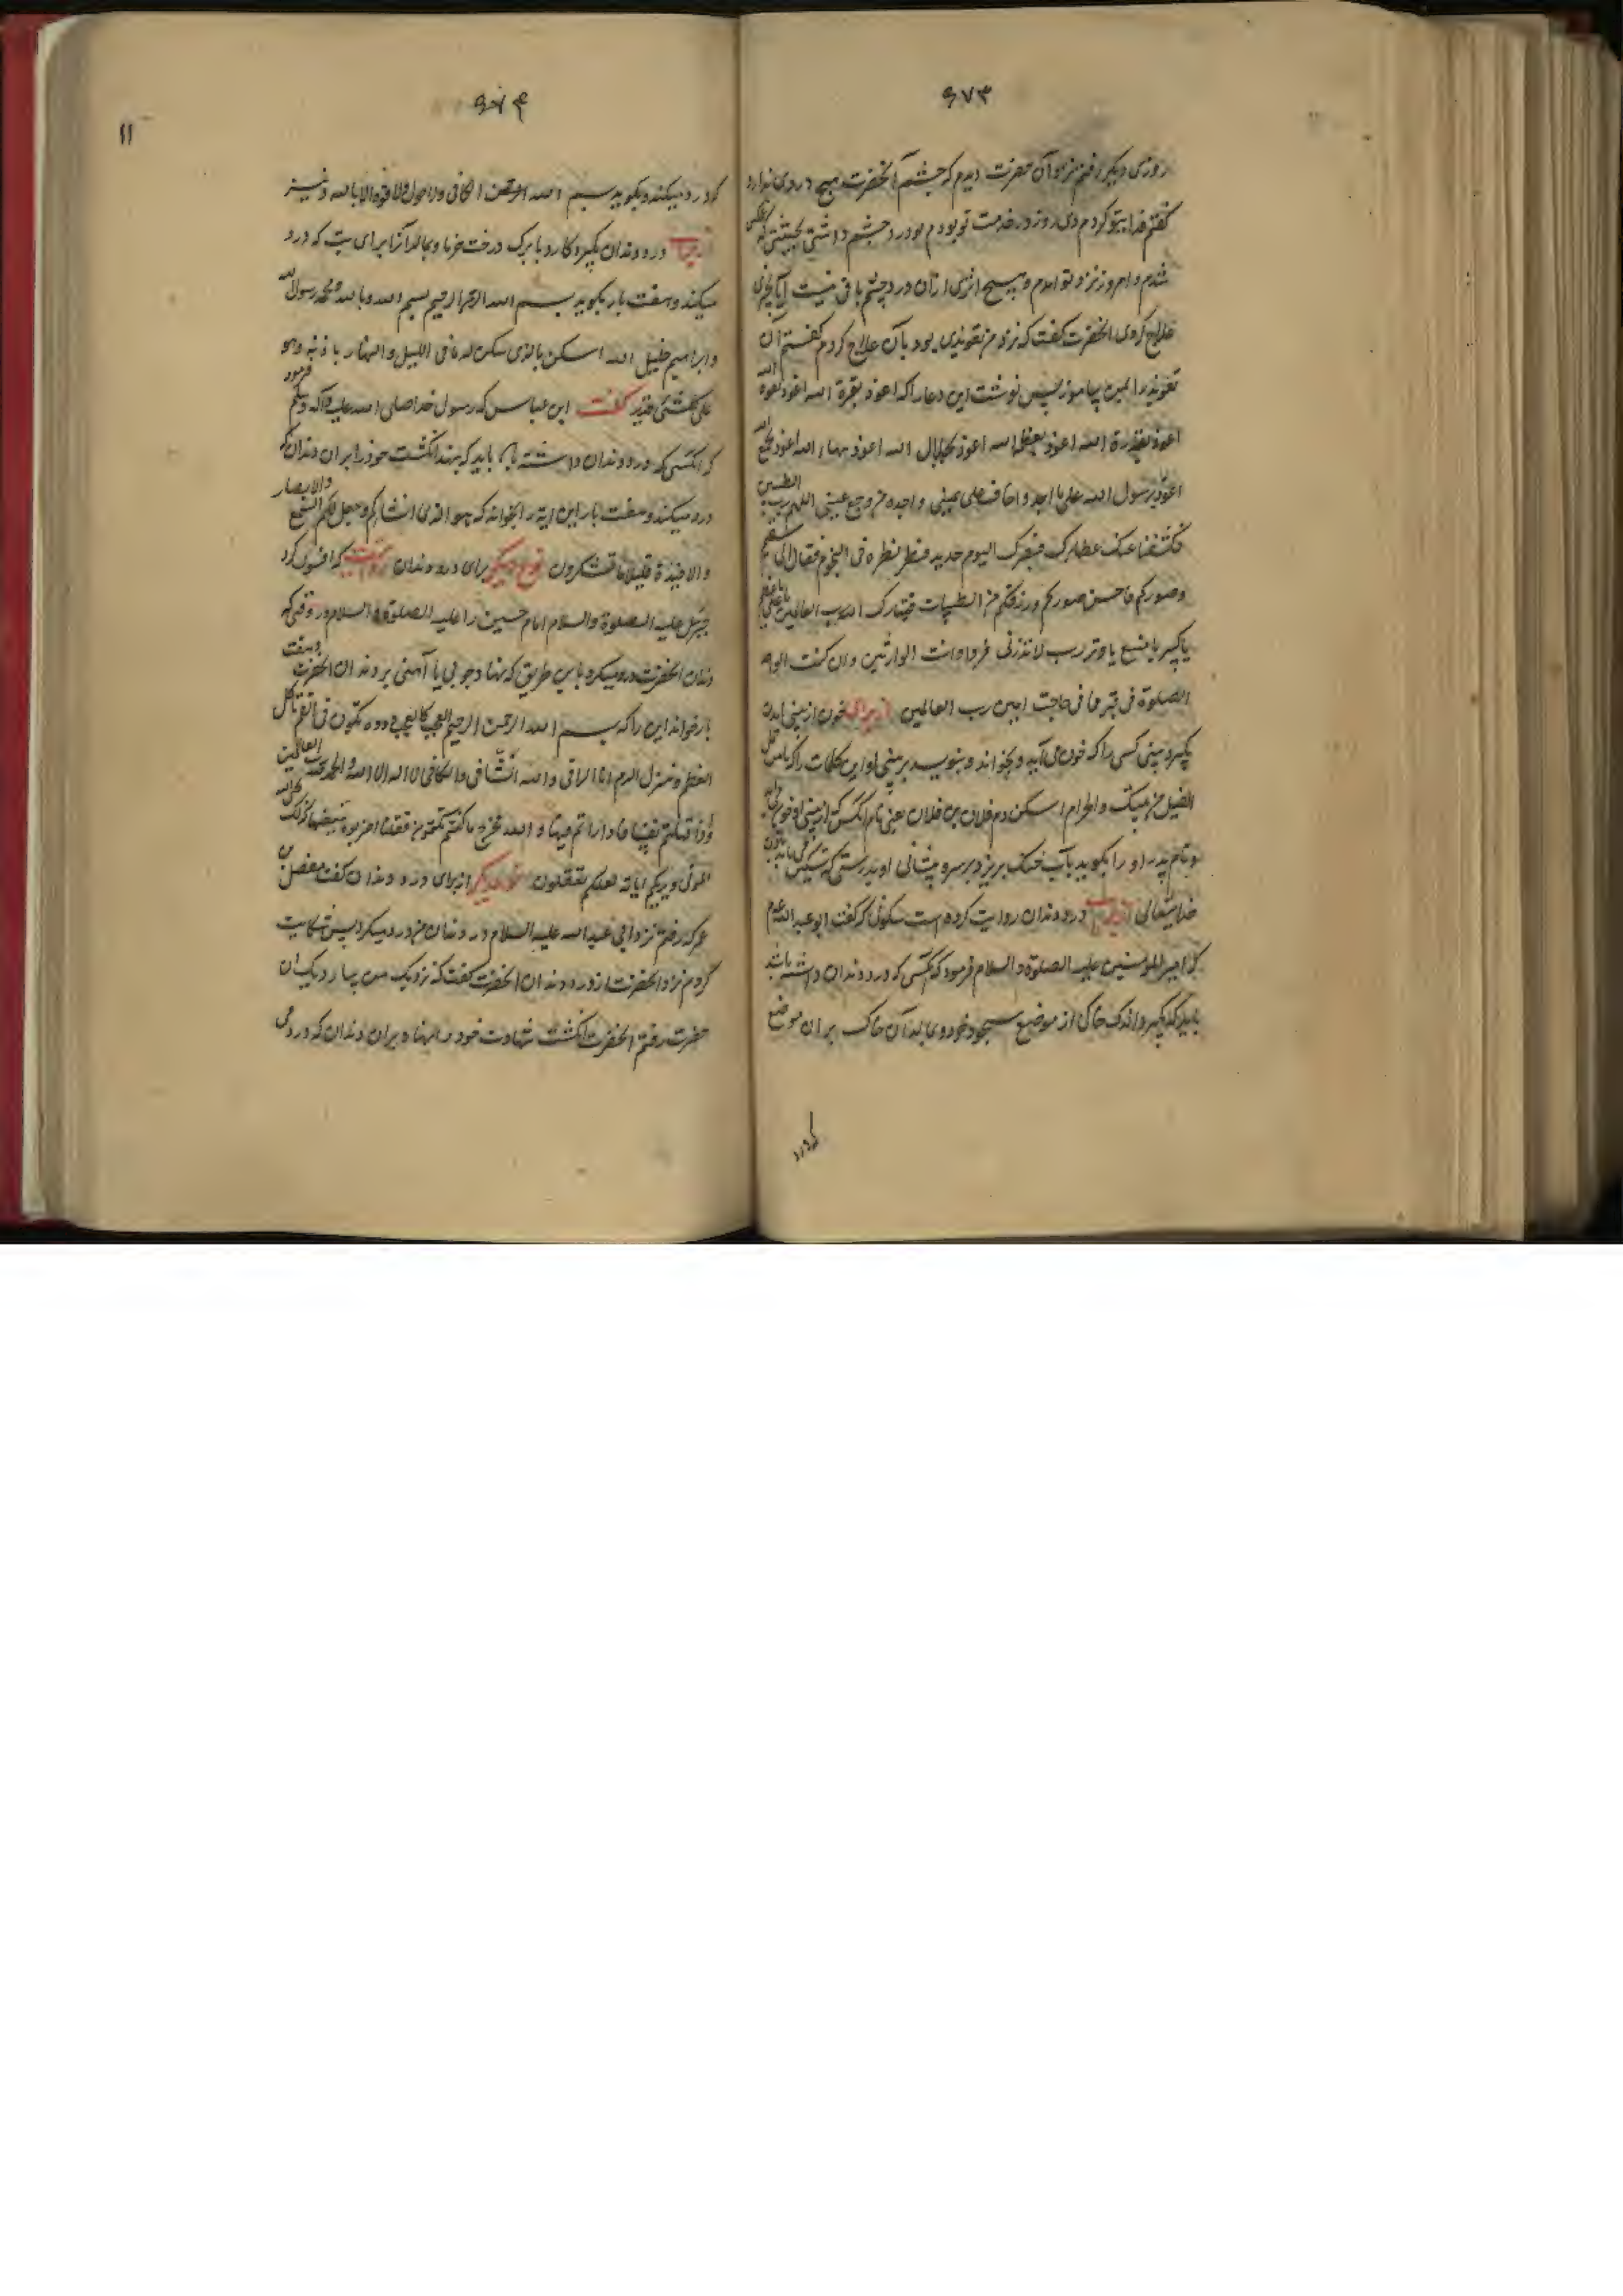 ۹۷۳
روزی دیگر رفتم نزد آن حضرت دیدم که چشم آنحضرت هیچ دردی ندارد
گفتم فدایتو کردم دی روز در خدمت تو بودم و درد چشم داشتی بحیثیتی که
شدم و امروز نزد تو امدم و هیچ اثری ازان درد چشم باقی نیست آیا بچیزی
علاج کردی آنحضرت گفت که نزد من تعویذی بود بآن علاج کردم گفتم آن
تعویذ را بمن بیاموز پس نوشت این دعا را که اعوذ بعزة الله اعوذ بقوة الله
اعوذ بقدرة الله اعوذ بعظمة الله اعوذ بجلال الله اعوذ ببهاء الله اعوذ بجمع الله
اعوذ برسول الله علی ما احذر و اخاف علی عینی و اجده من وجع عینی اللهم رب الطیبین
فکشفنا عنک غطاءک فبصرک الیوم حدید فنظر نظرة فی النجوم فقال انی سقیم
و صورکم فاحسن صورکم و رزقکم من الطیبات فتبارک الله رب العالمین یا علی یا عظیم
یا کبیر یا منیع یا وتر رب لا تذرنی فردا و انت خیر الوارثین و ان کنت
الصلوة فی حاجت امین رب العالمین از برای خون از بینی امدن
بگیرد بینی کسی را که خون می آید و بخواند و بنویسد بر بینی او این کلمات را که
الفیل من بیتک و الحرام اسکن دم فلان بن فلان یعنی نام انکس که از بینی او خون
و نام پدر او را بگوید و آب خنک بریزد بر سر و پیشانی او بدرستی که تسکین می یابد
خدایتعالی از برای درد دندان روایت کرده است سکونی که گفت ابو عبد الله علیه
که امیر المومنین علیه الصلوة و السلام فرمود که کسی که درد دندان داشته باشد
باید که بگیرد اندک خاکی از موضع سجود خود و بمالد آن خاک بران موضع
که درد
۹۷۴
۱۱
که درد میکند و بگوید بسم الله و الشافی الکافی و لا حول و لا قوة الا بالله و نیز
از برای درد دندان بگیرد کارد با برگ درخت خرما و بمالد آنرا برای که درد
میکند و هفت بار بگوید بسم الله الرحمن الرحیم بسم الله و بالله و محمد رسول الله
و ابراهیم خلیل الله اسکن بالذی سکن له ما فی اللیل و النهار باذنه و هو
علی کل شئ قدیر گفت ابن عباس که رسول خدا صلی الله علیه و آله و سلم فرمود
که انکسی که درد دندان داشته باشد باید که بنهد انگشت خود را بران دندان که
درد میکند و هفت بار این آیه را بخواند که هو الذی انشاکم و جعل لکم السمع و الابصار
و الافئدة قلیلا ما تشکرون نوع دیگر برای درد دندان روایت که افسون کرد
جبرئیل علیه الصلوة و السلام امام حسین را علیه الصلوة و السلام در وقتی که
دندان آنحضرت درد میکرد باین طریق که بنهاد چوبی یا آهنی بر دندان آنحضرت و هفت
بار خواند این را که بسم الله الرحمن الرحیم العجب کل العجب دوده تکون فی الفم تاکل
العظم و تنزل الدم انا الراقی و الله الشافی و الکافی لا اله الا الله و الحمد لله رب العالمین
و اذ قتلتم نفسا فادارأتم فیها و الله مخرج ما کنتم تکتمون فقلنا اضربوه ببعضها کذلک یحی الله
الموتی و یریکم آیاته لعلکم تعقلون نوع دیگر از برای درد دندان گفت مفضل بن
عمر که رفتم نزد ابی عبد الله علیه السلام و دندان من درد میکرد پس شکایت
کردم نزد آنحضرت از درد دندان آنحضرت گفت که نزدیک من بیا نزدیک آن
حضرت رفتم آنحضرت انگشت شهادت خود را نهاد بران دندان که درد می